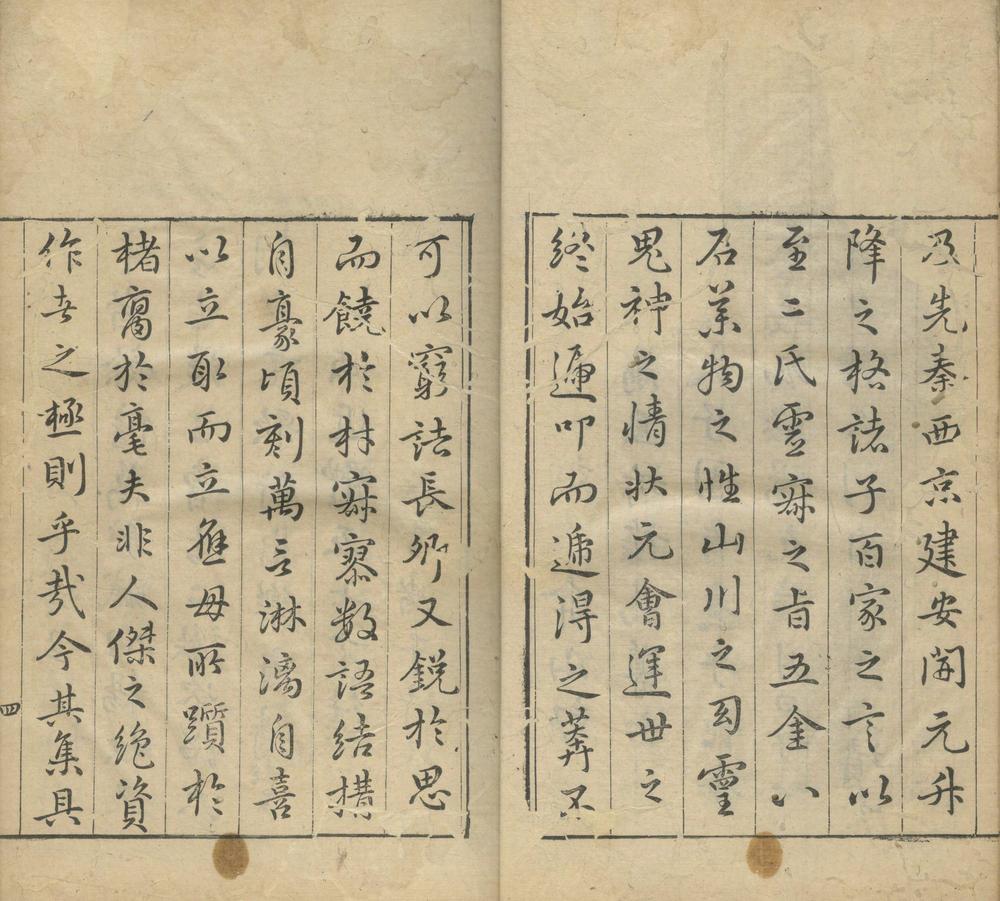 及先秦西京建安開元升
降之格諸子百家之言以
至二氏靈寀之旨五金八
石萬物之性山川之図靈
鬼神之情狀元會運世之
終始遍叩而遞得之莽不
可以窮詰長卿又銳於思
而饒於材寀寥数語結搆
自豪頃刻萬言淋漓自喜
以立取而立應毋所躓於
楮腐於毫夫非人傑之絶資
作者之極則乎哉今其集具
四